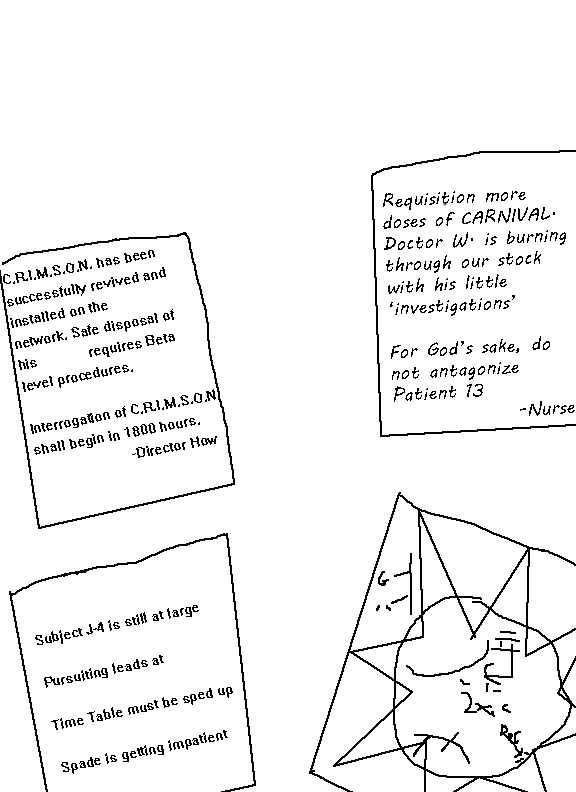 C.R.I.M.S.O.N. has been
successfully revived and
installed on the
network. Safe disposal of
his requires Beta
level procedures.
Interrogation of C.R.I.M.S.O.N
shall begin in 1800 hours.
-Director How
Requisition more
doses of CARNIVAL.
Doctor W. is burning
through our stock
with his little
'investigations'
For God's sake, do
not antagonize
Patient 13
-Nurse
Subject J-4 is still at large
Pursuiting leads at
Time Table must be sped up
Spade is getting impatient